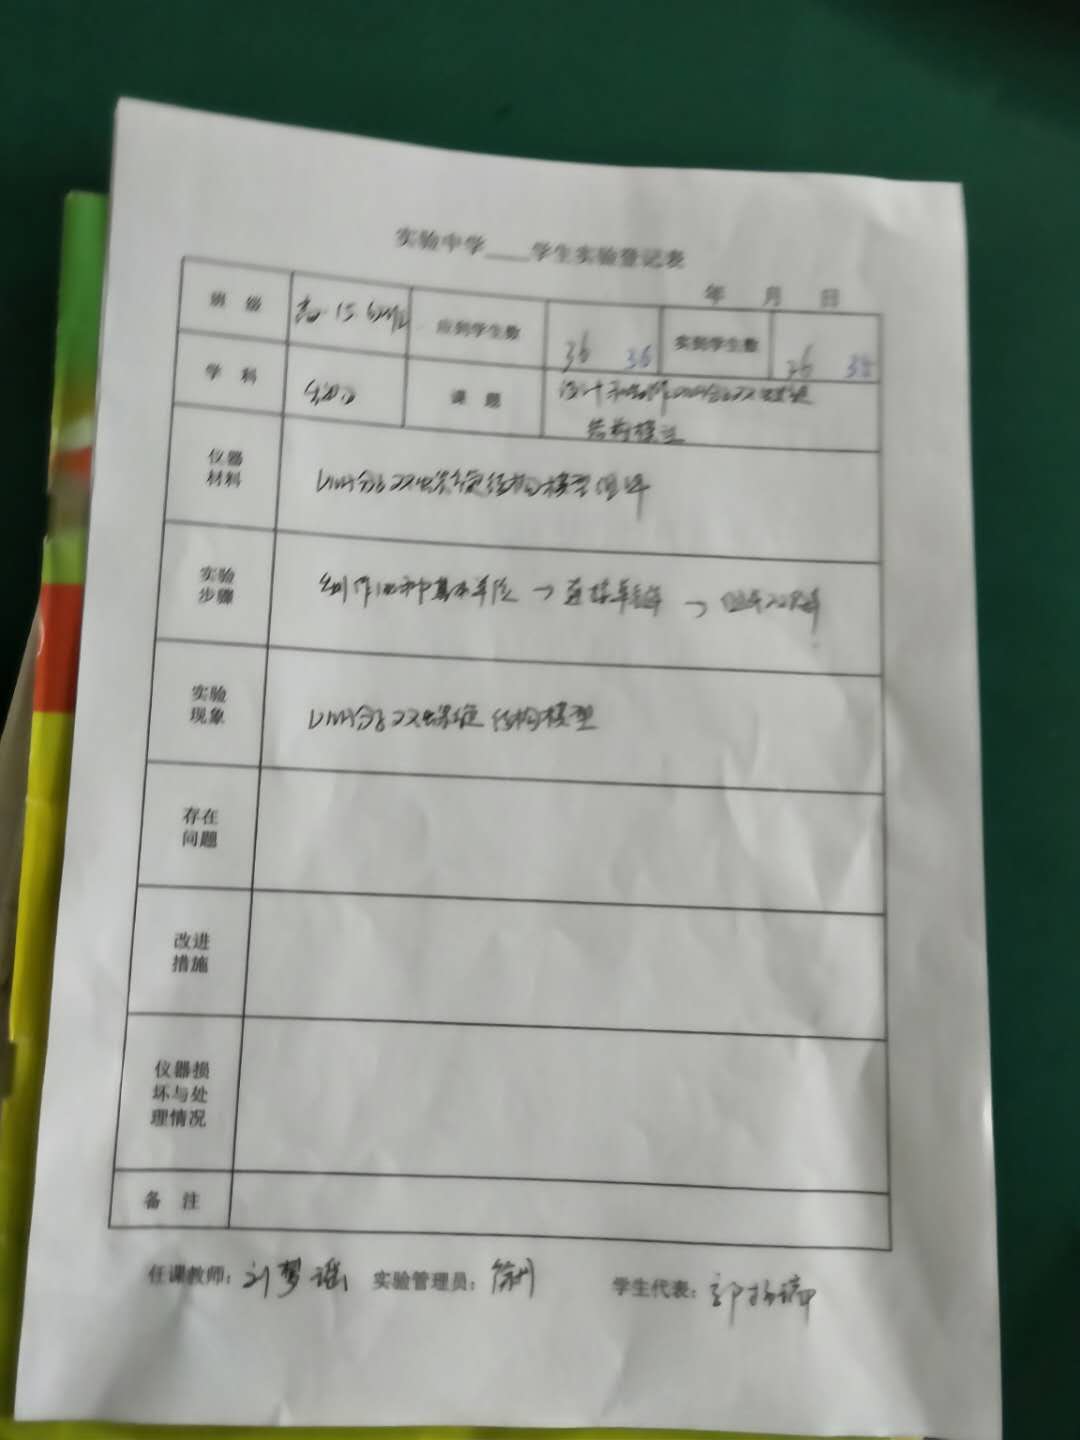 实验中学____学生实验登记表
年 月 日
班 级 应到学生数 36 36 实到学生数 36 38
学 科 生物 课 题 设计和制作DNA分子双螺旋
结构模型
仪器
材料 DNA分子双螺旋结构模型组件
实验
步骤 制作四种基本单位 → 连接单链 → 组成双链
实验
现象 DNA分子双螺旋结构模型
存在
问题
改进
措施
仪器损
坏与处
理情况
备 注
任课教师: 刘梦瑶 实验管理员: 学生代表: